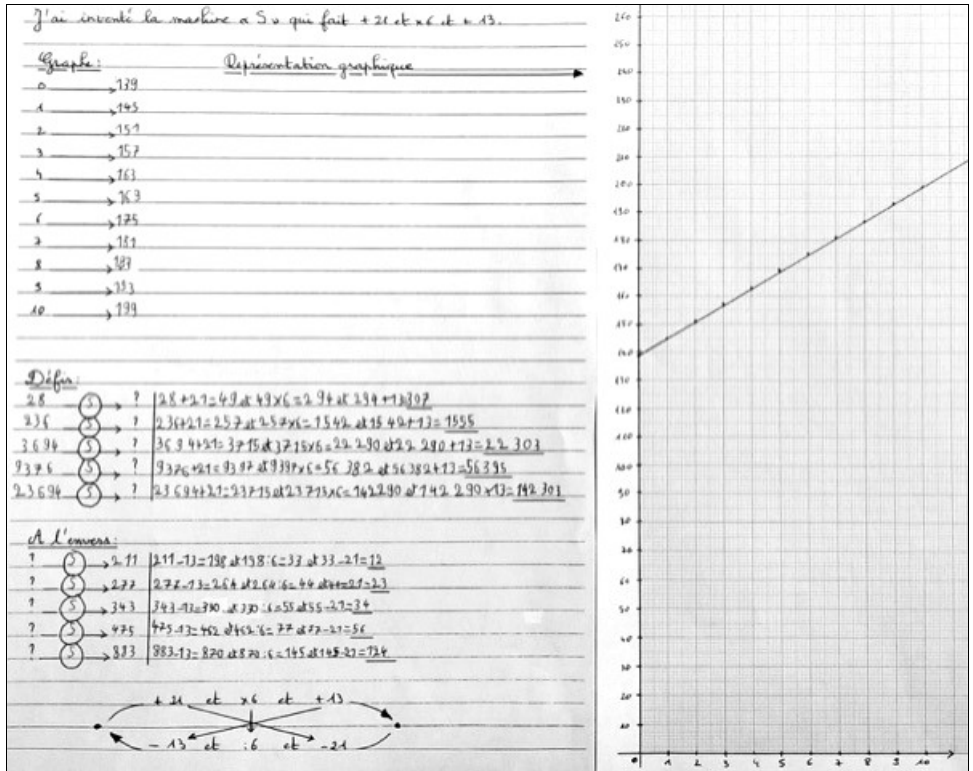 J'ai inventé la machine « S » qui fait + 21 et x6 et + 13.
Graphe:
Représentation graphique
0 → 139
1 → 145
2 → 151
3 → 157
4 → 163
5 → 169
6 → 175
7 → 181
8 → 187
9 → 193
10 → 199
Défis:
28 S → ? 28+21=49 et 49x6=294 et 294+13=307
236 S → ? 236+21=257 et 257x6=1542 et 1542+13=1555
3694 S → ? 3694+21=3715 et 3715x6=22 290 et 22 290+13=22 303
9376 S → ? 9376+21=9397 et 9397x6=56 382 et 56382+13=56395
23694 S → ? 23694+21=23715 et 23715x6=142290 et 142 290+13=142 303
A l'envers:
? S → 211 211-13=198 et 198:6=33 et 33-21=12
? S → 277 277-13=264 et 264:6=44 et 44-21=23
? S → 343 343-13=330 et 330:6=55 et 55-21=34
? S → 475 475-13=462 et 462:6=77 et 77-21=56
? S → 883 883-13=870 et 870:6=145 et 145-21=124
+ 21 et x6 et +13
- 13 et :6 et -21
260
250
240
230
220
210
200
190
180
170
160
150
140
130
120
110
100
90
80
70
60
50
40
30
20
10
0 1 2 3 4 5 6 7 8 9 10